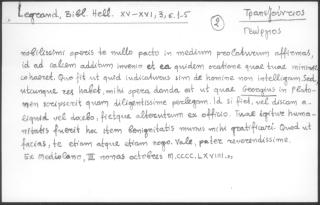 Legrand, Bibl. Hell. XV-XVI, 3, σ. 1-5
②
Τραπεζούντιος
Γεώργιος
nobilissimi operis te nullo pacto in medium prolaturum affirmas,
id ad calcem additum invenio et ea quidem ratione quae tuae minime
cohaeret. Quo fit ut quid iudicaturus sim de homine non intelligam. Sed,
utcunque res habet, mihi opera danda est ut quae Georgius in Plato-
nem scripserit quam diligentissime perlegam. Id si fiet, vel discam a-
liquid vel docebo, fietque alterutrum ex officio. Tuae igitur huma-
nitatis fuerit hoc stem benignitatis munus mihi gratificari. Quod ut
facias, te etiam atque etiam rogo. Vale, pater reverendissime.
Ex Mediolano, III nonas octobres M.CCCC.LXVIIII.